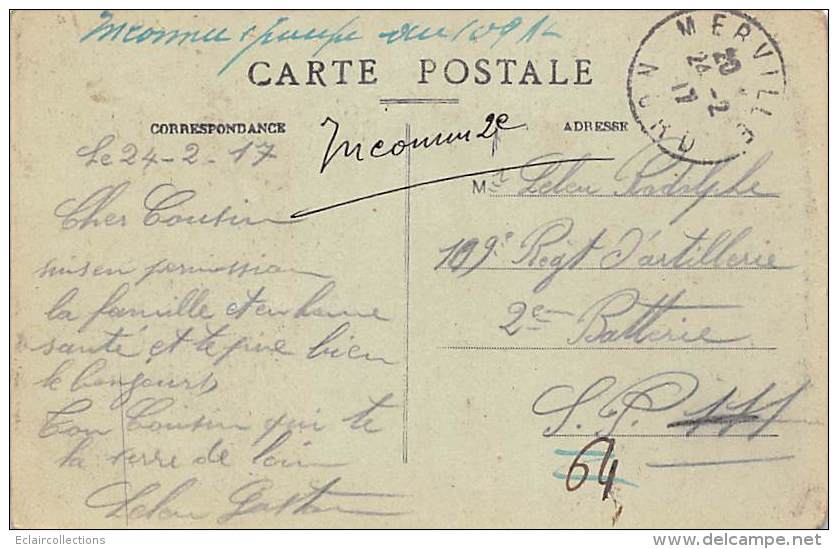 Inconnu groupe du 109 A
CARTE POSTALE
MERVILLE
20
24 - 2
17
NORD
CORRESPONDANCE
ADRESSE
Inconnu 2e
Le 24-2-17
M Leleu Rodolphe
Cher Cousin
109e Regt d'artillerie
suis en permission
la famille et en bonne
2em Batterie
santé et te bien
le bonjours
S. P. 111
Ton Cousin qui te
64
la serre de loin
Leleu Gaston
Eclaircollections
www.delcampe.net